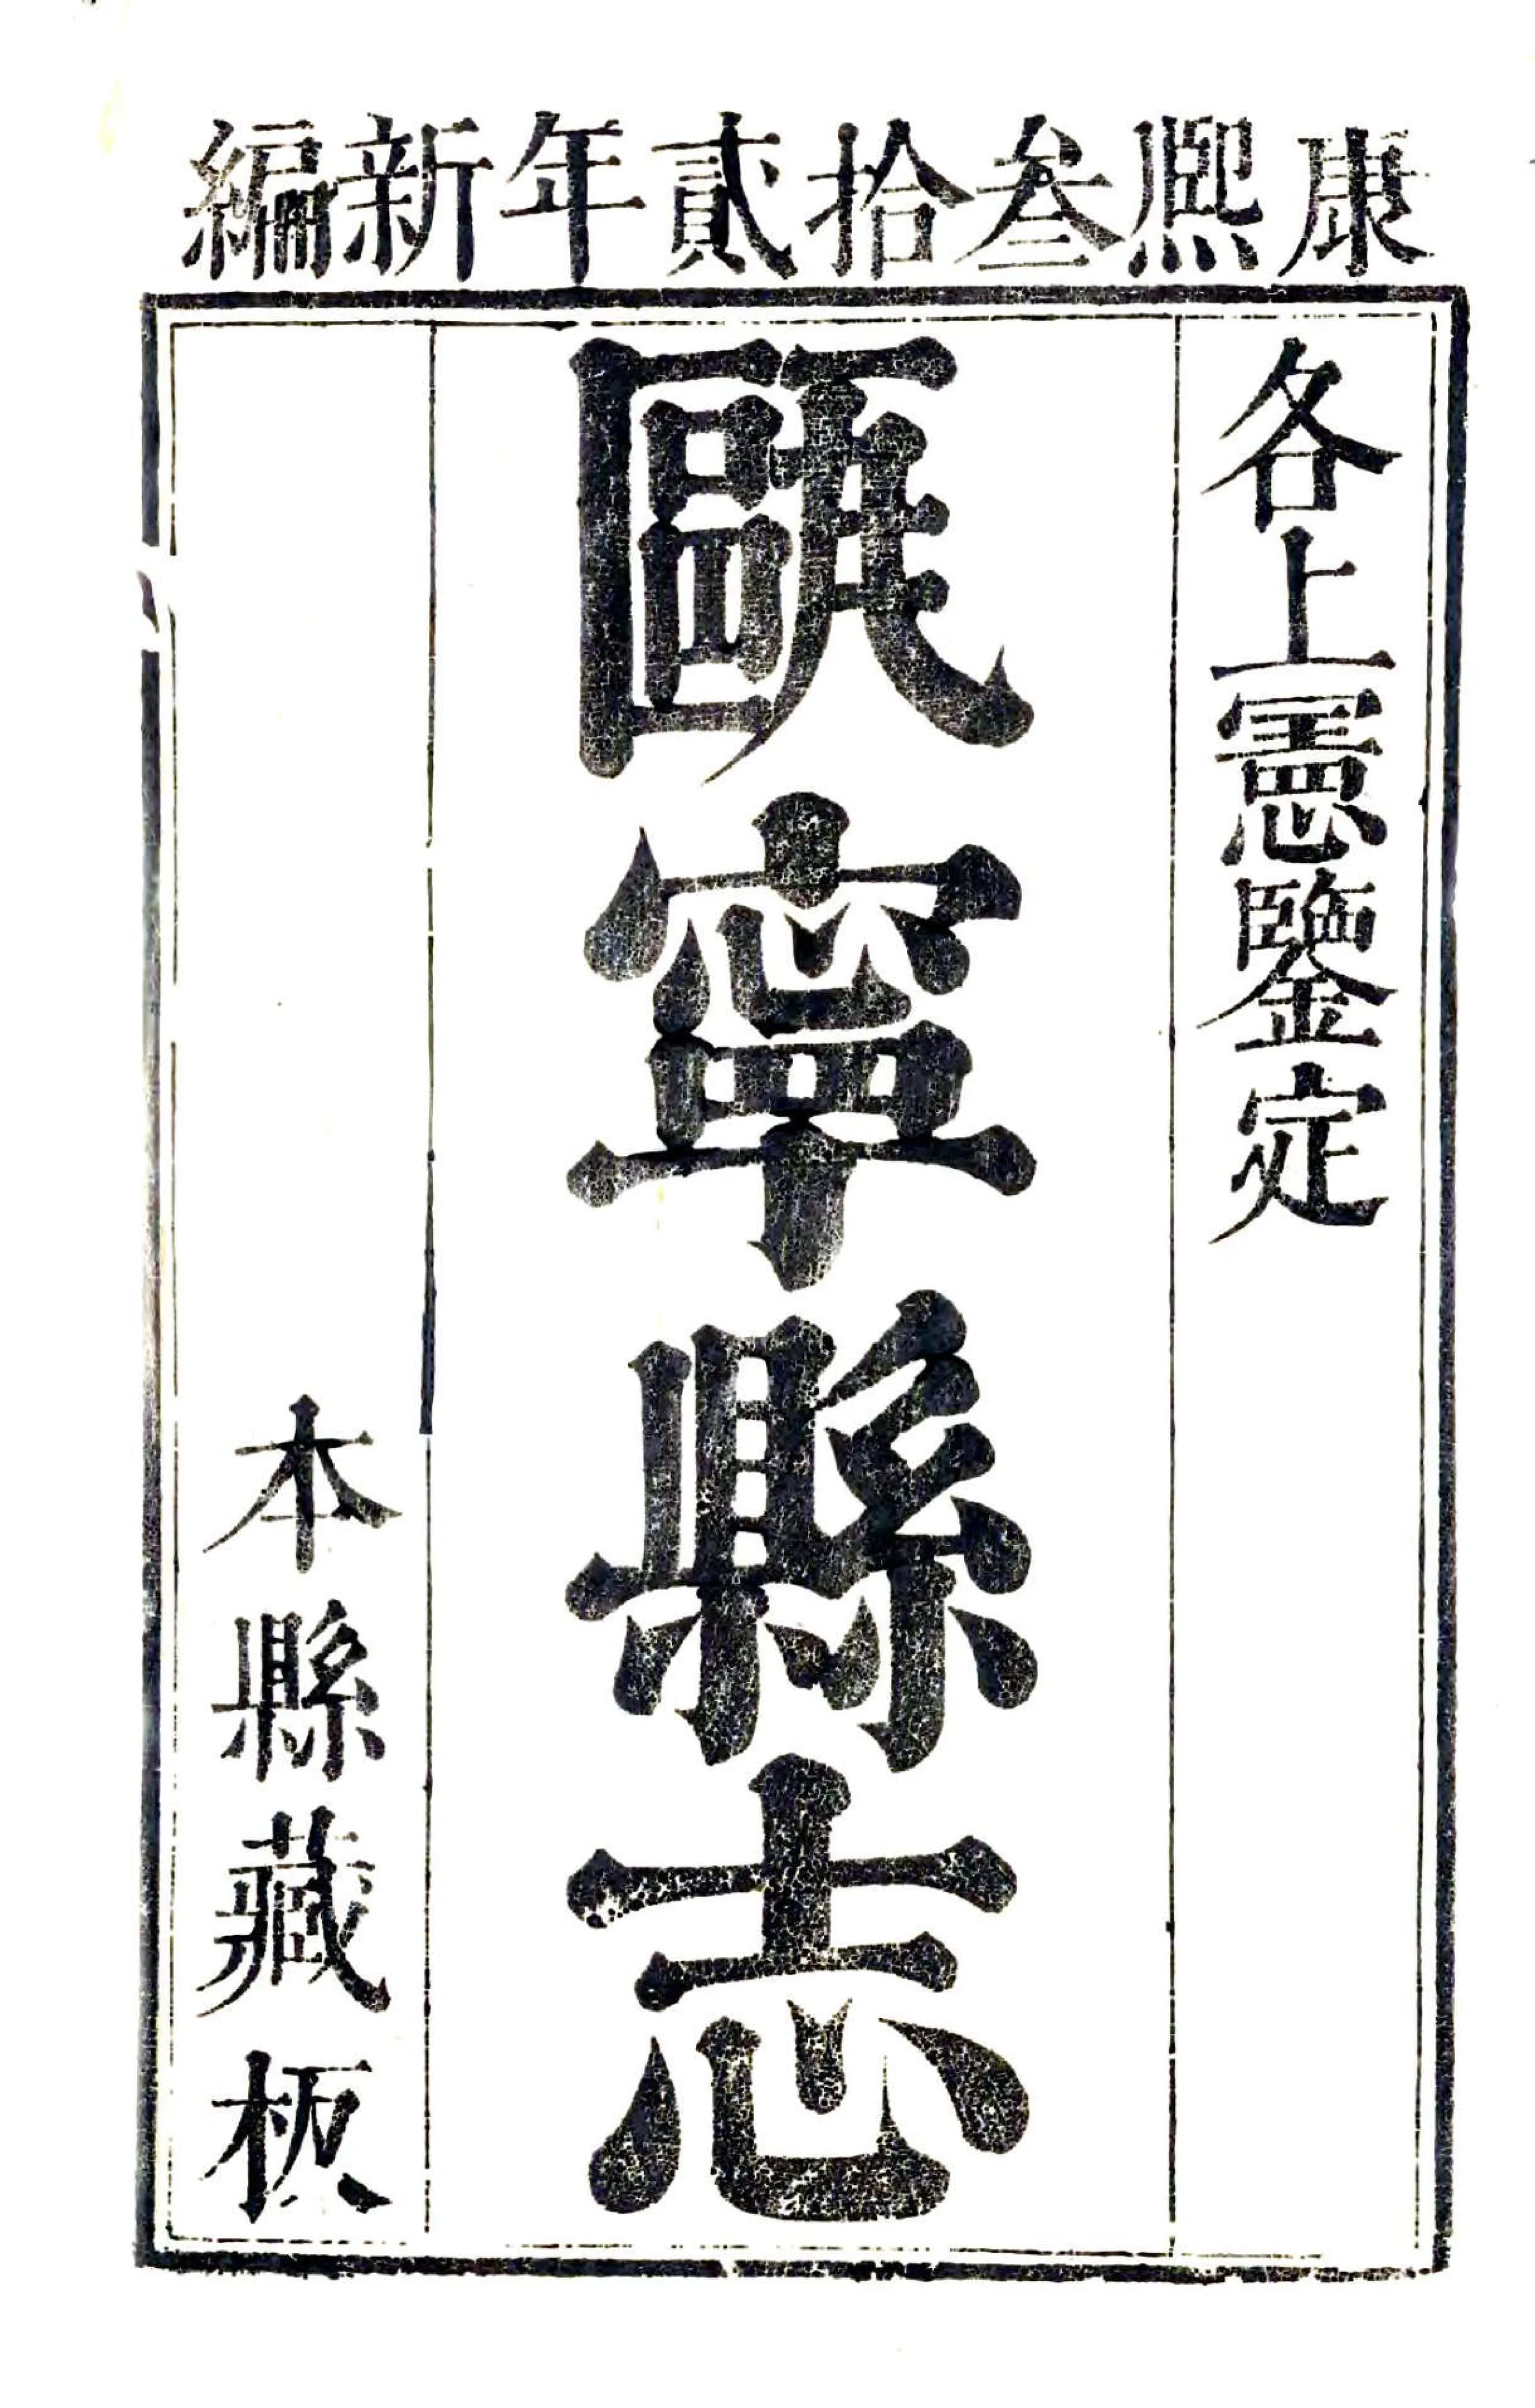 康熙叁拾貳年新編
各上憲鑒定
甌寧縣志
本縣藏板